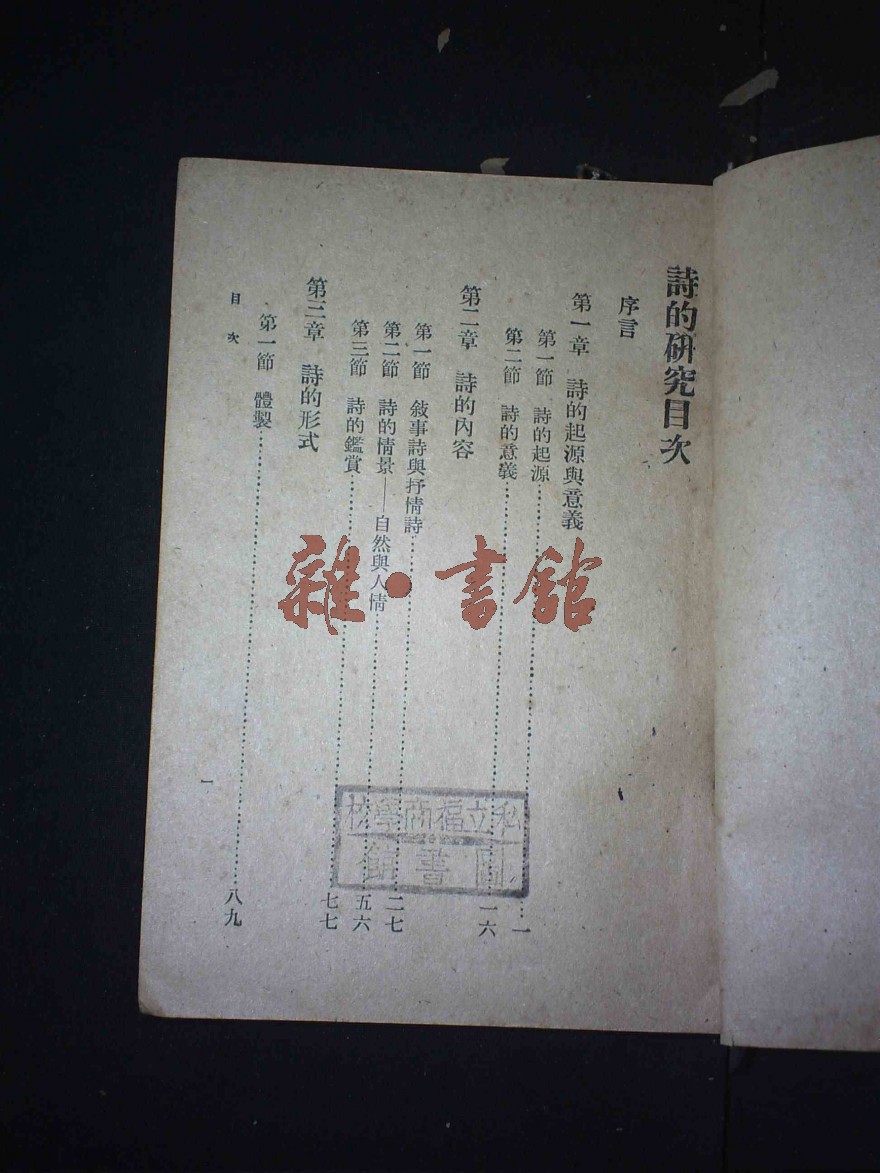 詩的研究目次
序言
第一章　詩的起源與意義
第一節　詩的起源……一
第二節　詩的意義……一六
第二章　詩的內容
第一節　敍事詩與抒情詩……二七
第二節　詩的情景——自然與人情……五六
第三節　詩的鑑賞……七七
第三章　詩的形式
第一節　體製……八九
目次
一
私立福商學校
圖書館
雜·書館